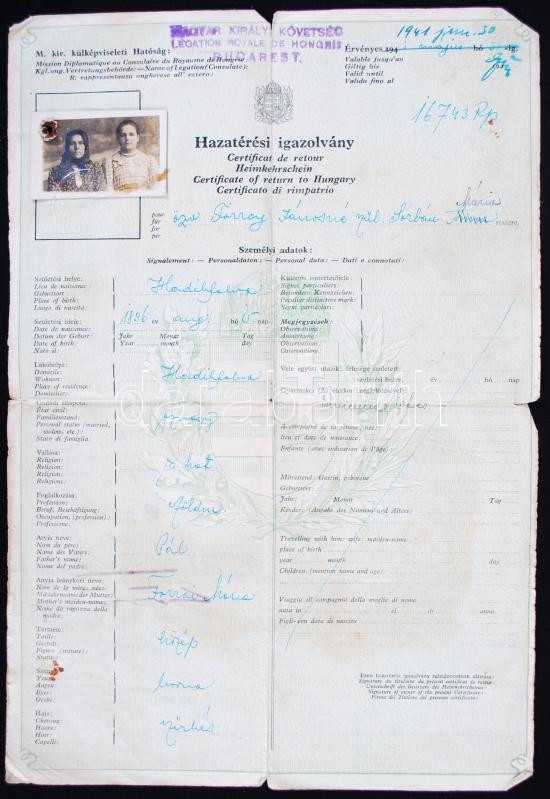 MAGYAR KIRÁLYI KÖVETSÉG
LEGATION ROYALE DE HONGRIE
BUDAREST.
M. kir. külképviseleti Hatóság:
Mission Diplomatique ou Consulaire du Royaume de Hongrie:
Kgl. ung. Vertretungsbehörde: — Name of Legation (Consulate):
R. rappresentanza ungherese all' estero:
1941 jun. 30
Érvényes 194 hó ig.
Valable jusqu'au
Giltig bis
Valid until
Valido fino al
16743 Rp
Hazatérési igazolvány
Certificat de retour
Heimkehrschein
Certificate of return to Hungary
Certificato di rimpatrio
Mária
pour
für
for
per
özv. Forray Jánosné szül. Sorbán részére,
Személyi adatok:
Signalement: — Personaldaten: — Personal data: — Dati e connotati:
Születési helye:
Lieu de naissance:
Geburtsort:
Place of birth:
Luogo di nascita:
Születési ideje:
Date de naissance:
Datum der Geburt:
Date of birth:
Nato il:
1896 év aug hó 5 nap
Jahr Monat Tag
year month day
Lakóhelye:
Domicile:
Wohnort:
Place of residence:
Domicilio:
Családi állapota:
État civil:
Familienstand:
Personal status (married,
widow, etc.):
Stato di famiglia:
özvegy
Vallása:
Religion:
Religion:
Religion:
Religione:
Foglalkozása:
Profession:
Beruf, Beschäftigung:
Occupation, (profession):
Professione:
Atyja neve:
Nom du père:
Name des Vaters:
Father's name:
Nome del padre:
Pál
Anyja leánykori neve:
Nom de la mère, née:
Mädchenname der Mutter:
Mother's maiden-name:
Nome da ragazza della
madre:
Forrai Mária
Termete:
Taille:
Gestalt:
Figure (stature):
Statura:
közép
Szeme:
Yeux:
Augen:
Eyes:
Occhi:
barna
Haja:
Cheveux:
Haare:
Hair:
Capelli:
szürkés
Különös ismertetőjele:
Signes particuliers:
Besondere Kennzeichen:
Peculiar distinctive mark:
Segni particolari:
Megjegyzések:
Observations:
Anmerkung:
Observations:
Osservazione:
Vele együtt utazik: felesége született:
születési helye: év hó nap
Gyermekei (Az életkor megjelölésével):
Accompagné de sa femme, née:
lieu et date de naissance:
Enfants (avec indication de l'âge)
Mitreisend: Gattin, geborene
Geburtsort:
Jahr: Monat Tag
Kinder: (Angabe des Namens und Alters)
Travelling with him: wife: maiden-name
place of birth
year month day
Children (mention name and age):
Viaggia ill compagnia della moglie di nome
nata in el di anno
Figli-con data di nascita
Ezen hazatérési igazolvány tulajdonosának aláírása:
Signature du titulaire du présent certificat de retour:
Unterschrift des Besitzers des Heimkehrscheins:
Signature of owner of the present Certificate:
Firma del Titolare del presente certificato:
darabanth